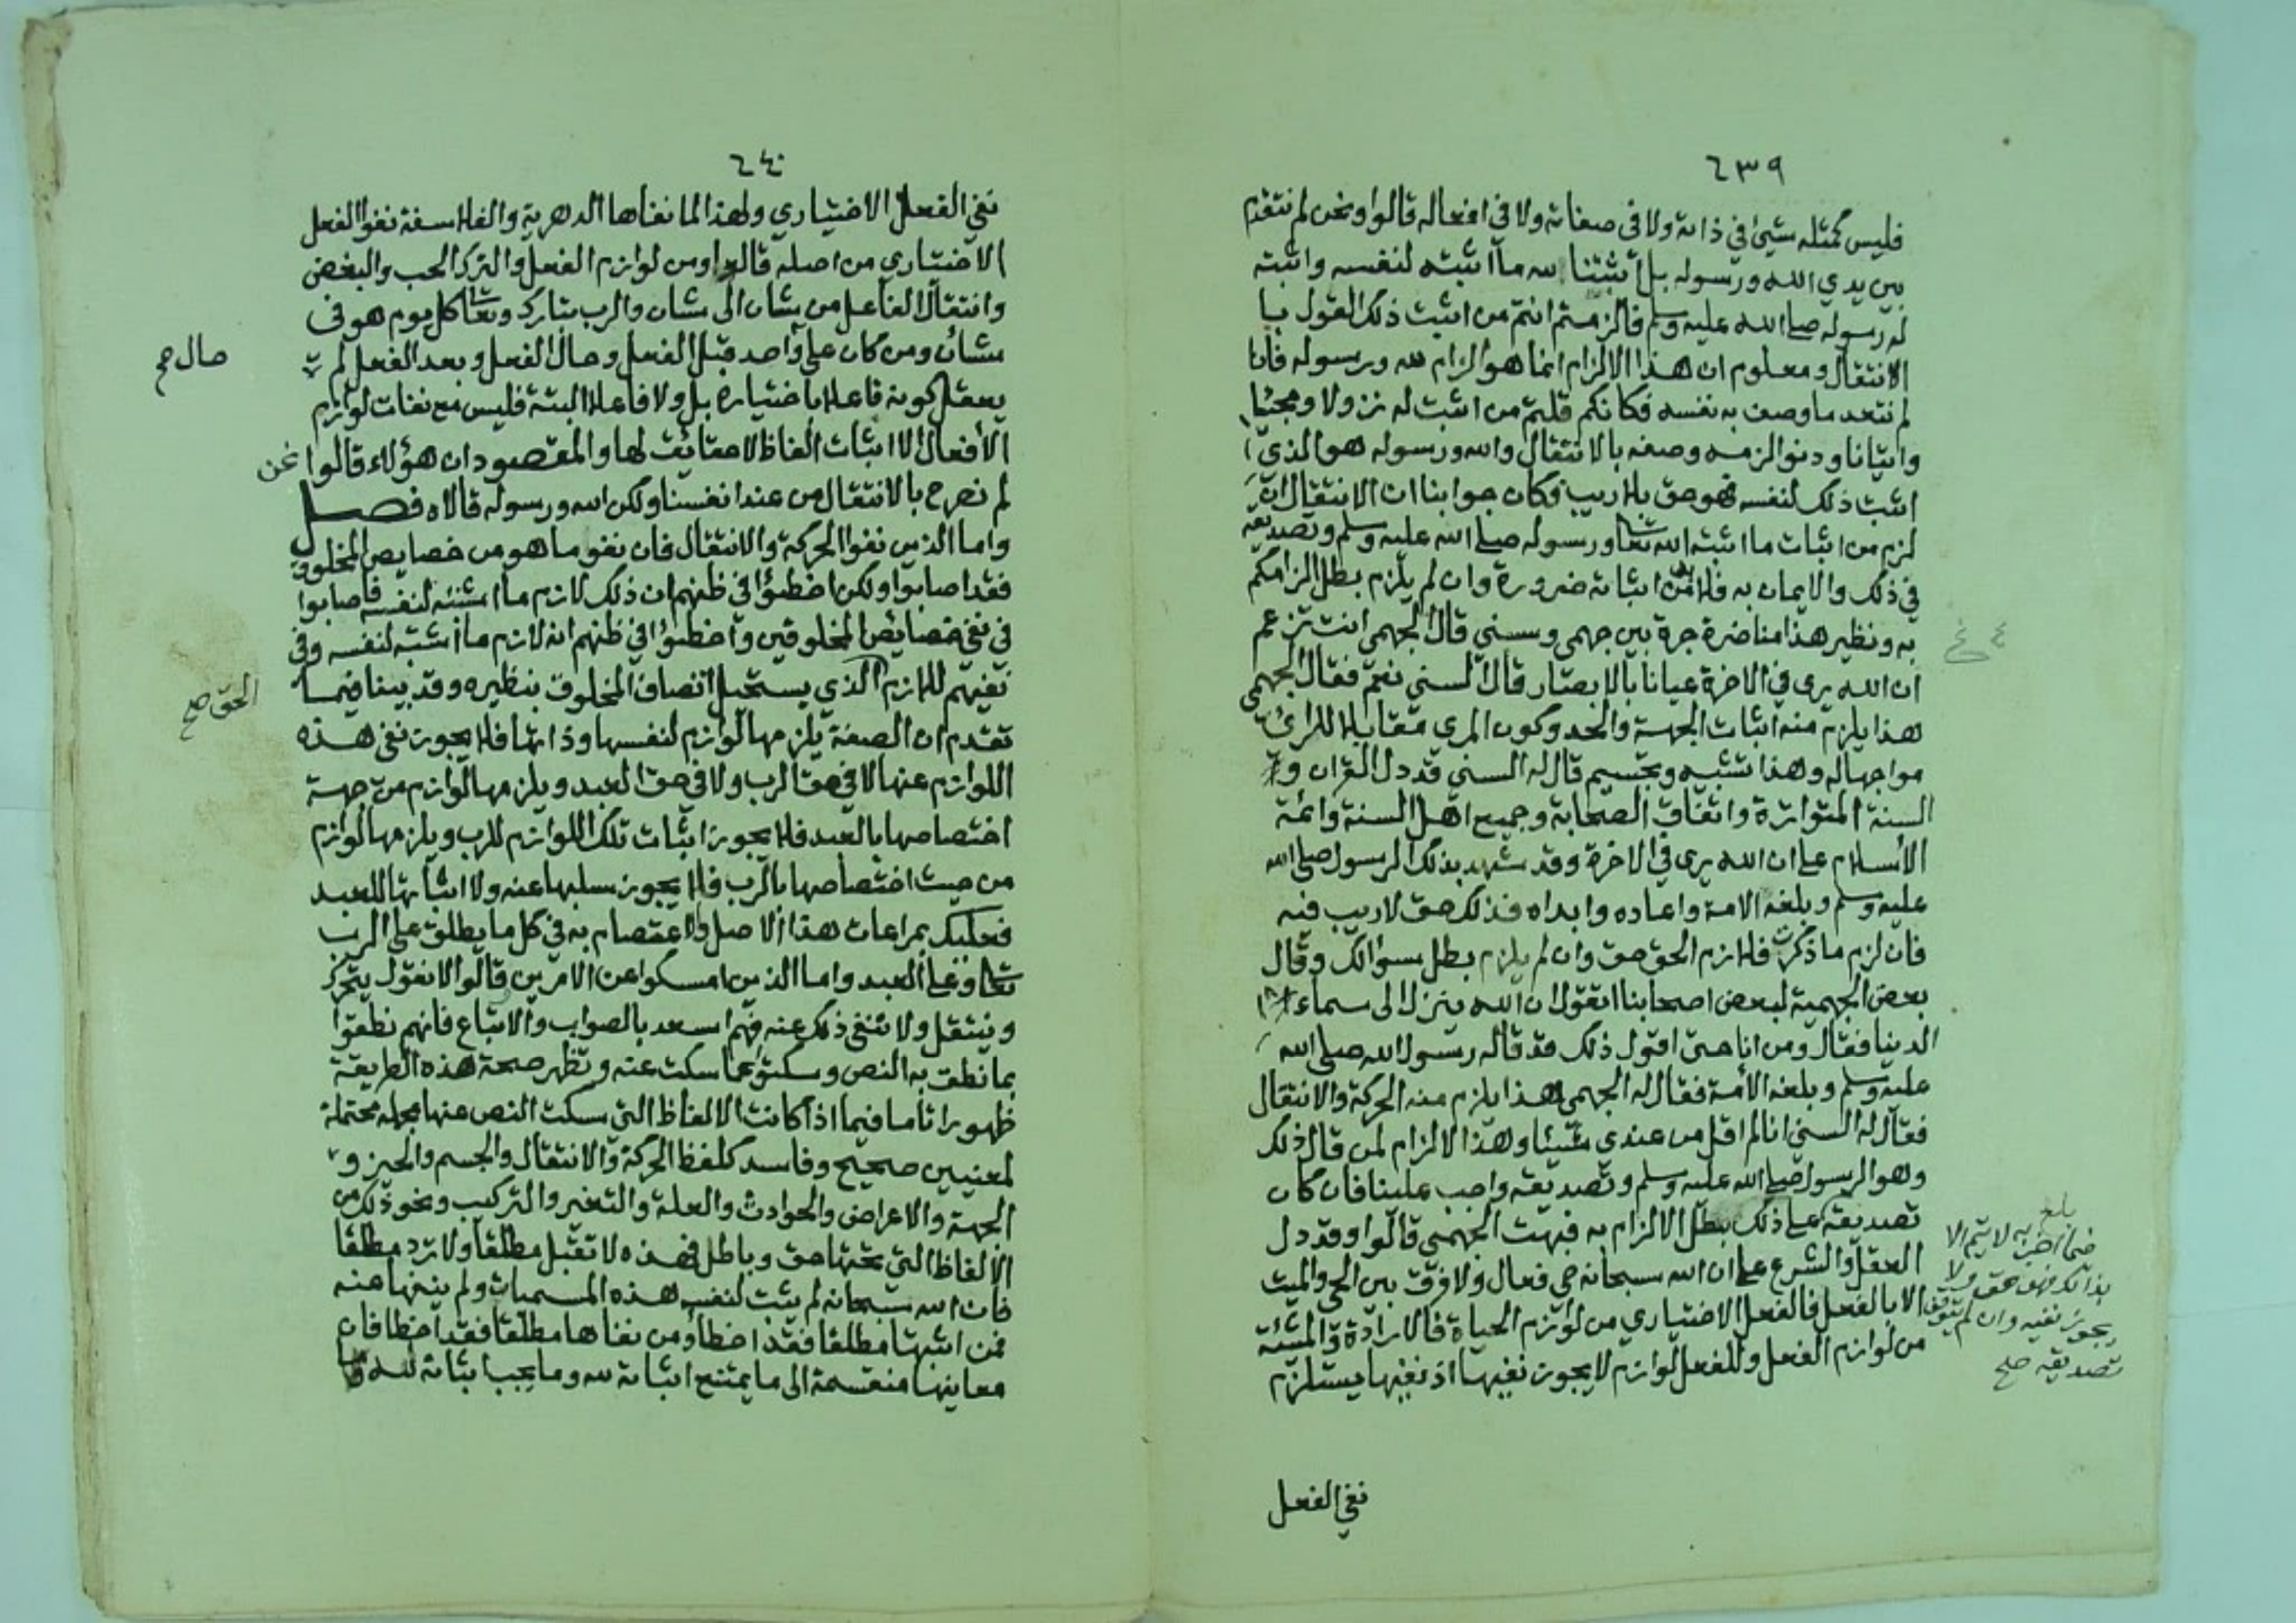 ٦٣٩
فليس كمثله شيئ في ذاته ولا في صفاته ولا في افعاله قالوا ونحن لم نتقدم
بين يدي الله ورسوله بل أثبتنا لله ما أثبته لنفسه واثبته
له رسوله صلى الله عليه وسلم فالزمتم انتم من اثبت ذلك القول با
لانتقال ومعلوم ان هذا الالزام انما هو الزام لله ورسوله فانا
لم نتعد ما وصف به نفسه فكانكم قلتم من اثبت له نزولا ومجيئا
واتيانا ودنوا لزمه وصفه بالانتقال والله ورسوله هو الذي
اثبت ذلك لنفسه فهو حق بلا ريب فكان جوابنا ان الانتقال ان
لزم من اثبات ما اثبته الله تعا ورسوله صلى الله عليه وسلم وتصديقه
في ذلك والايمان به فلا بد من اثباته ضرورة وان لم يلزم بطل الزامكم
به ونظير هذا مناضرة جرة بين جهمي وسني قال الجهمي انت تزعم
ان الله يرى في الاخرة عيانا بالابصار قال السني نعم فقال الجهمي
هذا يلزم منه اثبات الجهة والحد وكون المري مقابلا للرائي
مواجها له وهذا تشبيه وتجسيم قال له السني قد دل القران و
السنة المتواترة واتفاق الصحابة وجميع اهل السنة وائمة
الأسلام على ان الله يرى في الاخرة وقد شهد بذلك الرسول صلى الله
عليه وسلم وبلغه الامة واعاده وابداه فذلك حق لا ريب فيه
فان لزم ما ذكرت فلازم الحق حق وان لم يلزم بطل سؤالك وقال
بعض الجهمية لبعض اصحابنا اتقول ان الله ينزل الى سماء
الدنيا فقال ومن انا حتى اقول ذلك قد قاله رسول الله صلى الله
عليه وسلم وبلغه الأمة فقال له الجهمي هذا يلزم منه الحركة والانتقال
فقال له السني انا لم اقل من عندي شيئا وهذا الالزام لمن قال ذلك
وهو الرسول صلى الله عليه وسلم وتصديقه واجب علينا فان كان
تصديقه على ذلك بطل الالزام به فبهت الجهمي قالوا وقد دل
العقل والشرع على ان الله سبحانه حي فعال ولا فرق بين الحي والميت
الا بالفعل فالفعل الاختياري من لوازم الحياة فالارادة والمشيئة
من لوازم الفعل وللفعل لوازم لا يجوز نفيها اذ نفيها يستلزم
بلغ
فيما اخبر به لا يتم الا
بذلك فهو حق ولا
يجوز نفيه وان لم يتوقف
تصديقه صح
نفي الفعل
٦٤٠
نفي الفعل الاختياري ولهذا لما نفاها الدهرية والفلاسفة نفوا الفعل
الاختياري من اصله قالوا ومن لوازم الفعل والترك الحب والبغض
وانتقال الفاعل من شان الى شان والرب تبارك وتعا كل يوم هو في
شأن ومن كان على واحد قبل الفعل وحال الفعل وبعد الفعل لم
حال صح
يعقل كونه فاعلا باختياره بل ولا فاعلا البتة فليس مع نفات لوازم
الأفعال الا اثبات الفاظ لا حقائق لها والمقصود ان هؤلاء قالوا نحن
لم نصرح بالانتقال من عند انفسنا ولكن الله ورسوله قالاه فصل
واما الذين نفوا الحركة والانتقال فان نفو ما هو من خصايص المخلوق
فقد اصابوا ولكن اخطئوا في ظنهم ان ذلك لازم ما اثبته لنفسه فاصابوا
في نفي خصايص المخلوقين واخطئوا في ظنهم انه لازم ما أثبته لنفسه وفي
نفيهم للازم الذي يستحيل اتصاف المخلوق بنظيره وقد بينا فيما
الحق صح
تقدم ان الصفة يلزمها لوازم لنفسها وذاتها فلا يجوز نفي هذه
اللوازم عنها لا في حق الرب ولا في حق العبد ويلزمها لوازم من جهة
اختصاصها بالعبد فلا يجوز اثبات تلك اللوازم للرب ويلزمها لوازم
من حيث اختصاصها بالرب فلا يجوز سلبها عنه ولا اثباتها للعبد
فعليك بمراعات هذا الاصل والاعتصام به في كل ما يطلق على الرب
تعا وعلى العبد واما الذين امسكوا عن الامرين قالوا لا نقول يتحرك
وينتقل ولا ننفي ذلك عنه فهم اسعد بالصواب والاتباع فانهم نطقوا
بما نطق به النص وسكتوا عما سكت عنه وتظهر صحة هذه الطريقة
ظهورا تاما فيما اذا كانت الالفاظ التي سكت النص عنها مجملة محتملة
لمعنيين صحيح وفاسد كلفظ الحركة والانتقال والجسم والحيز و
الجهة والاعراض والحوادث والعلة والتغير والتركيب ونحو ذلك من
الألفاظ التي تحتها حق وباطل فهذه لا تقبل مطلقا ولا ترد مطلقا
فان الله سبحانه لم يثبت لنفسه هذه المسميات ولم ينفها عنه
فمن اثبتها مطلقا فقد اخطأ ومن نفاها مطلقا فقد اخطا فان
معاينها منقسمة الى ما يمتنع اثباته لله وما يجب اثباته لله وما